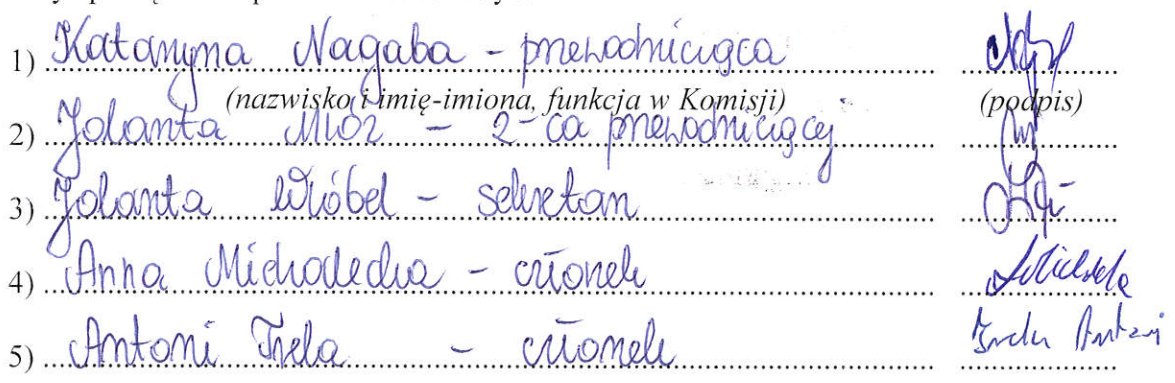 1) Katarzyna Nagaba - przewodnicząca
(nazwisko i imię-imiona, funkcja w Komisji) (podpis)
2) Jolanta Mróz - z-ca przewodniczącej
3) Jolanta Wróbel - sekretarz
4) Anna - członek
5) Antoni Trela - członek